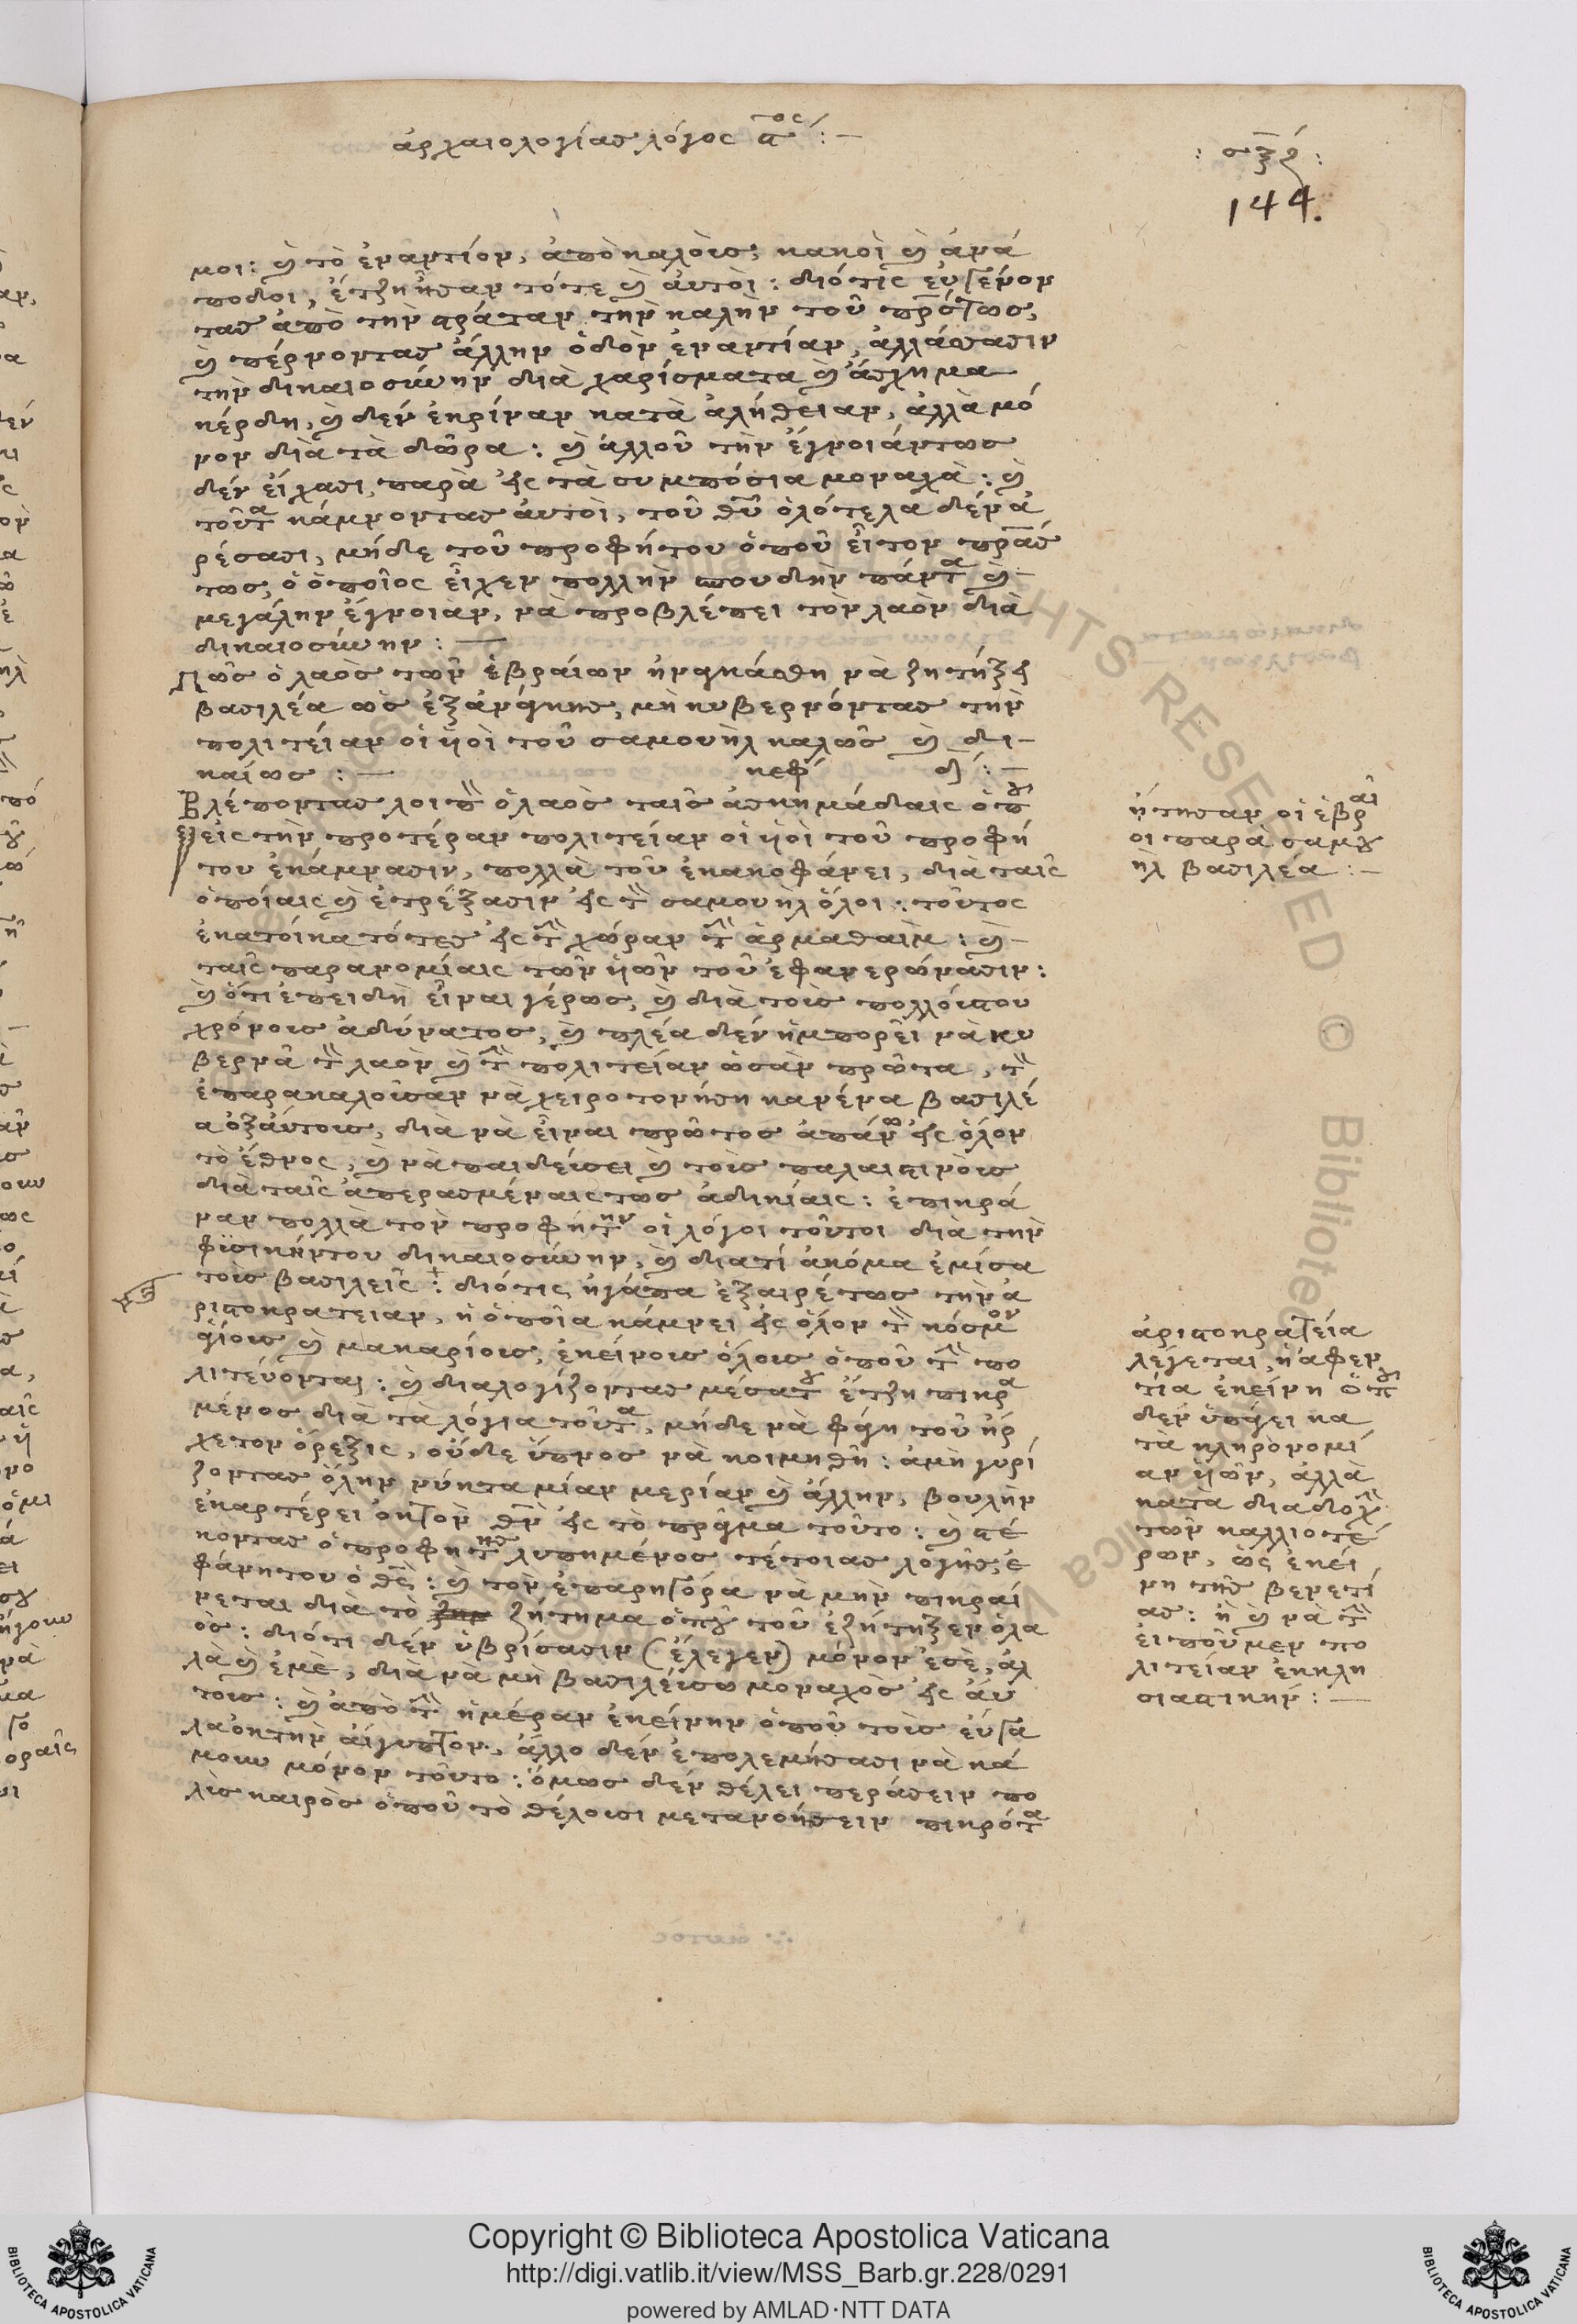 ἀρχαιολογίας λόγος ϛ^ος : —
: σξζ :
144.
μοι: καὶ τὸ ἐναντίον, ἀπὸ καλοὺς, κακοὶ καὶ ἀνά
ποδοι, ἔτζη ἦσαν τότε καὶ αὐτοὶ: διότις εὐγένον
τας ἀπὸ τὴν στράταν τὴν καλὴν τοῦ πρστως,
καὶ πέρνοντας ἄλλην ὁδὸν ἐναντίαν, ἀλλάσσασιν
τὴν δικαιοσύνην διὰ χαρίσματα καὶ ἄσχημα
κέρδη, καὶ δεν ἐκρίναν κατὰ ἀλήθειαν, ἀλλὰ μό
νον διὰ τὰ δῶρα: καὶ ἀλλοῦ τὴν ἔγνοιάντως
δέν εἴχασι παρὰ εἰς τὰ συμπόσια μοναχὰ: καὶ
τοῦτα κάμνοντας αὐτοὶ, τοῦ θῦ ὁλότελα δέν ἀ
ρέσασι, μήδε τοῦ προφήτου ὁποῦ εἶτον πρας
τως, ὁ ὁποῖος εἶχεν πολλὴν σπουδὴν πάντα καὶ
μεγάλην ἔγνοιαν, νὰ προβλέπει τὸν λαὸν διὰ
δικαιοσύνην: —
Πῶς ὁ λαὸς τῶν ἑβραίων ἠναγκάσθη νὰ ζητήξῃ
βασιλέα ὡς ἐξανάγκης, μὴ κυβερνόντας τὴν
πολιτείαν οἱ ὑιοὶ τοῦ σαμουὴλ καλῶς καὶ δι-
καίως: — κεφ δ: —
Βλέποντας λοιπ ὁ λαὸς ταῖς ἀσχημάδαις ὁπου
εἰς τὴν προτέραν πολιτείαν οἱ ὑιοὶ τοῦ προφή
του ἐκάμνασιν, πολλὰ τοῦ ἐκακοφάνει, διὰ ταῖς
ὁποίαις καὶ ἐτρέξασιν εἰς τὸν σαμουὴλ ὅλοι: τοῦτος
ἐκατοίκα τότες εἰς τὴν χώραν τὴν ἀρμαθαὶμ: καὶ
ταῖς παρανομίαις τῶν ὑιῶν τοῦ ἐφανερώνασιν:
καὶ ὅτι ἐπειδὴ εἶναι γέρως, καὶ διὰ τοὺς πολλούςτου
χρόνους ἀδύνατος, καὶ πλέα δέν ἠμπορεῖ νὰ κυ
βερνᾶ τὸν λαὸν καὶ τὴν πολιτείαν ὡσὰν πρῶτα, τὸν
ἐπαρακαλοῦσαν νὰ χειροτονήσῃ κανένα βασιλέ
α ὀξάυτους, διὰ νὰ εἶναι πρῶτος ἀπάνω εἰς ὅλον
τὸ ἔθνος, καὶ νὰ παιδεύσει καὶ τοὺς παλαιστινοὺς
διὰ ταῖς ἀπερασμέναιςτως ἀδικίαις: ἐπικρά
ναν πολλὰ τὸν προφήτην οἱ λόγοι τοῦτοι διὰ τὴν
φϋσικήντου δικαιοσύνην, καὶ διατί ἀκόμα ἐμίσα
τοὺς βασιλεῖς: διότις ἠγάπα ἐξαιρέτως τὴν ἀ
ριστοκρατειαν, ἡ ὁποῖα κάμνει εἰς ὅλον τὸν κόσμον
ἁγίους καὶ μακαρίους, ἐκείνους ὅλους ὁποῦ τὴν πο
λιτεύονται: καὶ διαλογίζοντας μέσατου ἔτζη πικρα
μένος διὰ τὰ λόγια τοῦτα, μήδε νὰ φάγη τοῦ ἤρ
χετον ὄρεξις, οὔδε ὕπνος νὰ κοιμηθῆ: ἀμὴ γυρί
ζοντας ὅλην νύκτα μίαν μερίαν καὶ ἄλλην, βουλὴν
ἐκαρτέρει ὀκτὸν θν εἰς τὸ πρᾶγμα τοῦτο: καὶ στέ
κοντας ὁ προφήτης λυπημένος τέτοιας λογῆς, ἐ
φάνητου ὁ θς: καὶ τὸν ἐπαρηγόρα νὰ μὴν πικραί
νεται διὰ τὸ ζήτημα ὁποῦ τοῦ ἐζήτηξεν ὁ λα
ὸς: διότι δέν ὑβρίσασιν (ἔλεγεν) μόνον ἐσὲ, ἀλ
λὰ καὶ ἐμὲ, διὰ νὰ μὴ βασιλεύσω μοναχὸς εἰς αὐ
τους: καὶ ἀπὸ τὴν ἡμέραν ἐκείνην ὁποῦ τοὺς εὔγα
λα ὀκτὴν αἴγυπτον, ἄλλο δέν ἐπολεμήσασι νὰ κά
μουν μόνον τοῦτο: ὅμως δέν θέλει περάσειν πο
λὺς καιρὸς ὁποῦ τὸ θέλουσι μετανοήσειν πικρότα
ἠτησαν οἱ ἑβραῖ
οι παρὰ σαμου
ὴλ βασιλέα: —
ἀριστοκρατεία
λέγεται, ἡ ἀφεν
τία ἐκείνη ὁποῦ
δέν ὑπάγει κα
τὰ κληρονομί
αν ὑιῶν, ἀλλὰ
κατὰ διαδοχὴν
τῶν καλλιοτέ
ρων, ὡς ἐκεί
νη τῆς βενετί
ας: ἢ καὶ νὰ τὴν
εἰποῦμεν πο
λιτείαν ἐκκλη
σιαστικην: —
Copyright © Biblioteca Apostolica Vaticana
http://digi.vatlib.it/view/MSS_Barb.gr.228/0291
powered by AMLAD·NTT DATA
BIBLIOTECA APOSTOLICA VATICANA
BIBLIOTECA APOSTOLICA VATICANA